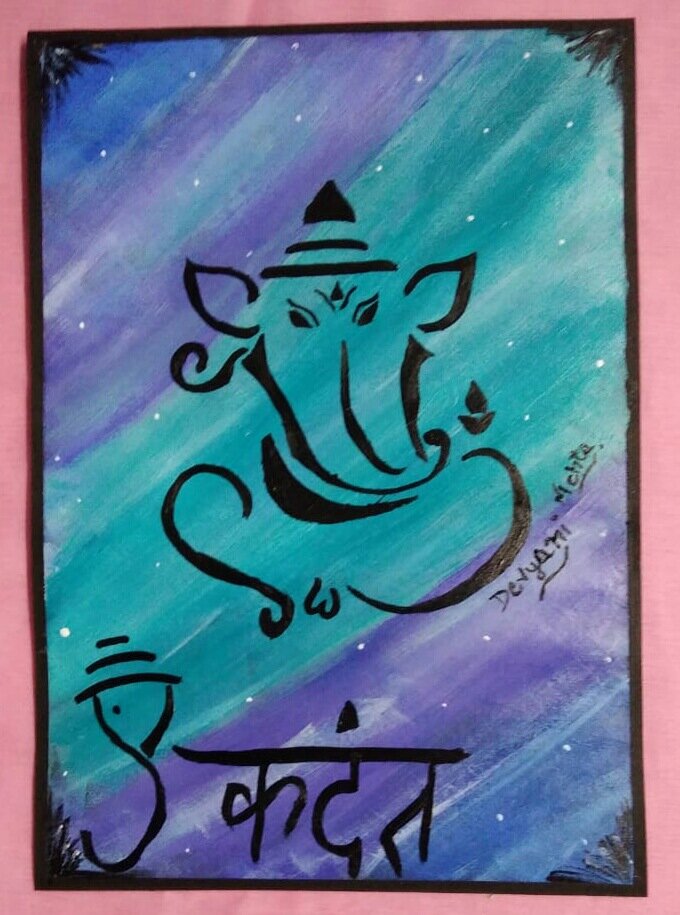 Devyani Mohite.
एकदंत